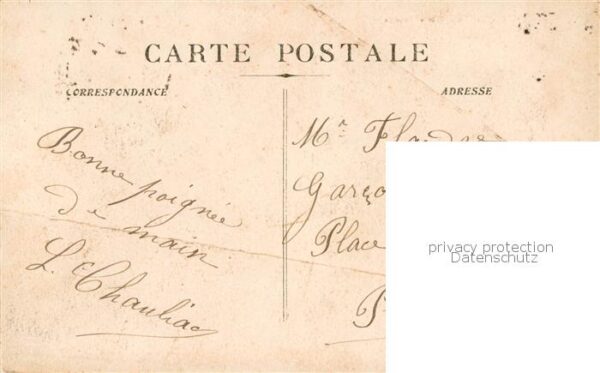 CARTE POSTALE
CORRESPONDANCE
ADRESSE
Bonne poignée
de main
L. Chauliac
Mr
Place
privacy protection
Datenschutz